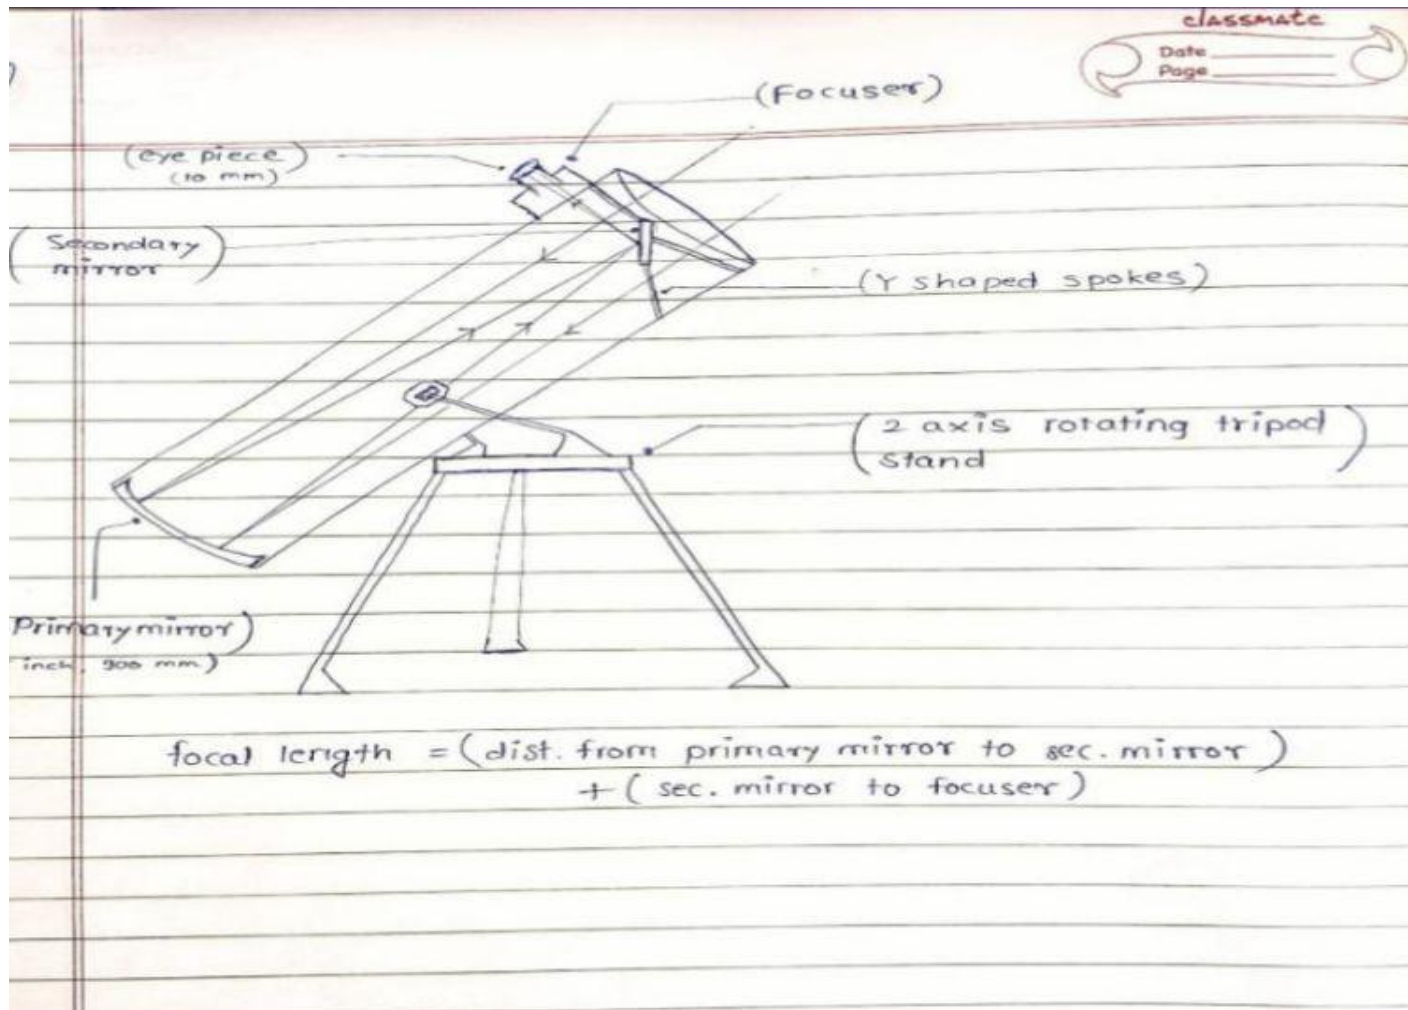 classmate
Date
Page
(Focuser)
(eye piece)
(10 mm)
(Secondary
mirror)
(Y shaped spokes)
(2 axis rotating tripod
stand)
Primary mirror)
inch, 900 mm)
focal length = (dist. from primary mirror to sec. mirror)
+ (sec. mirror to focuser)